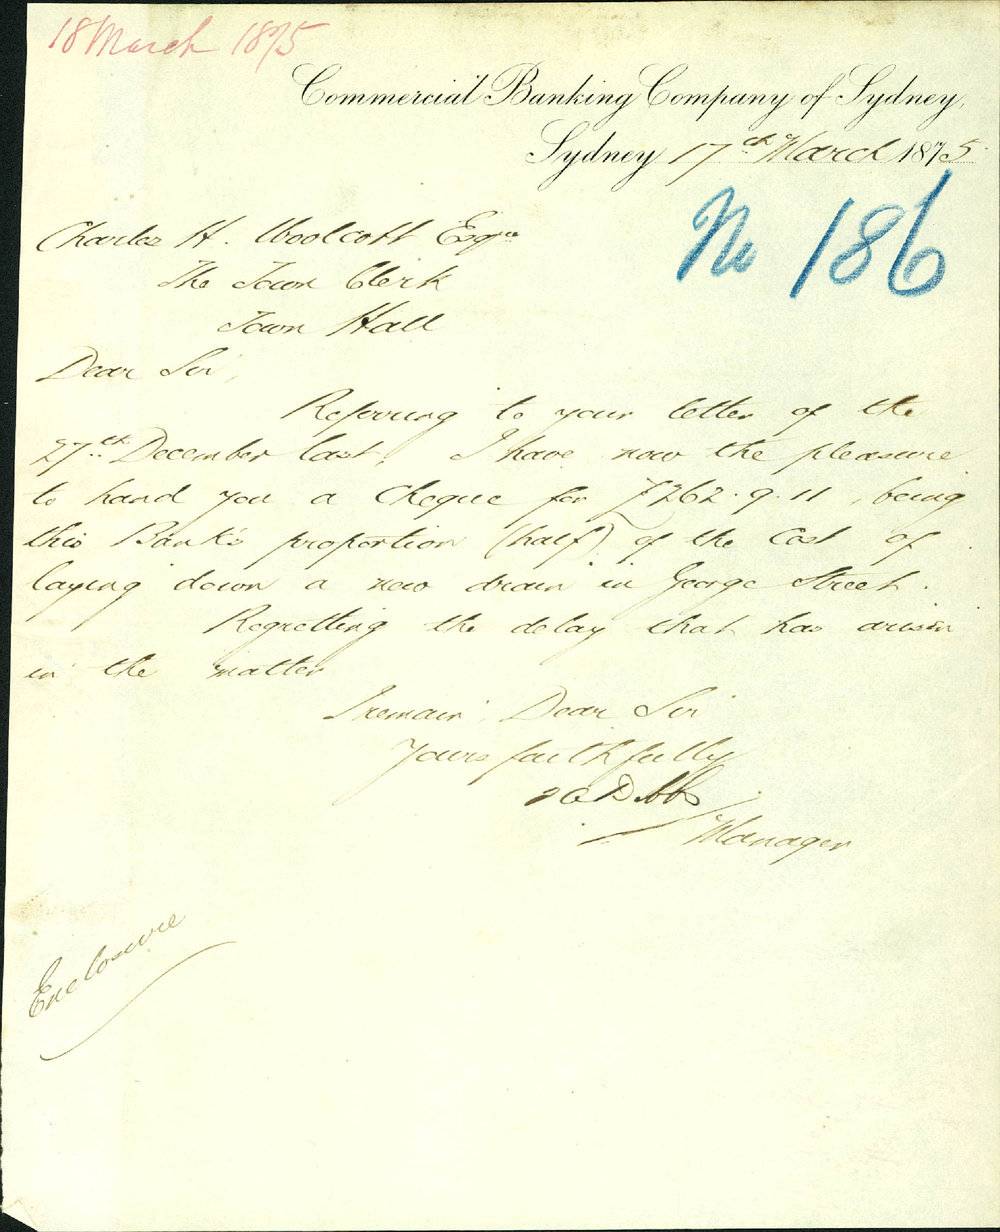 18 March 1875
Commercial Banking Company of Sydney,
Sydney 17th March 1875
No 186
Charles H. Woolcott Esqre
The Town Clerk
Town Hall
Dear Sir,
Referring to your letter of the
27th December last, I have now the pleasure
to hand you a cheque for £262.9.11, being
this Bank's proportion (half) of the Cost of
laying down a new drain in George Street.
Regretting the delay that has arisen
in the matter
I remain, Dear Sir
Yours faithfully
Dibbs
Manager
Enclosure